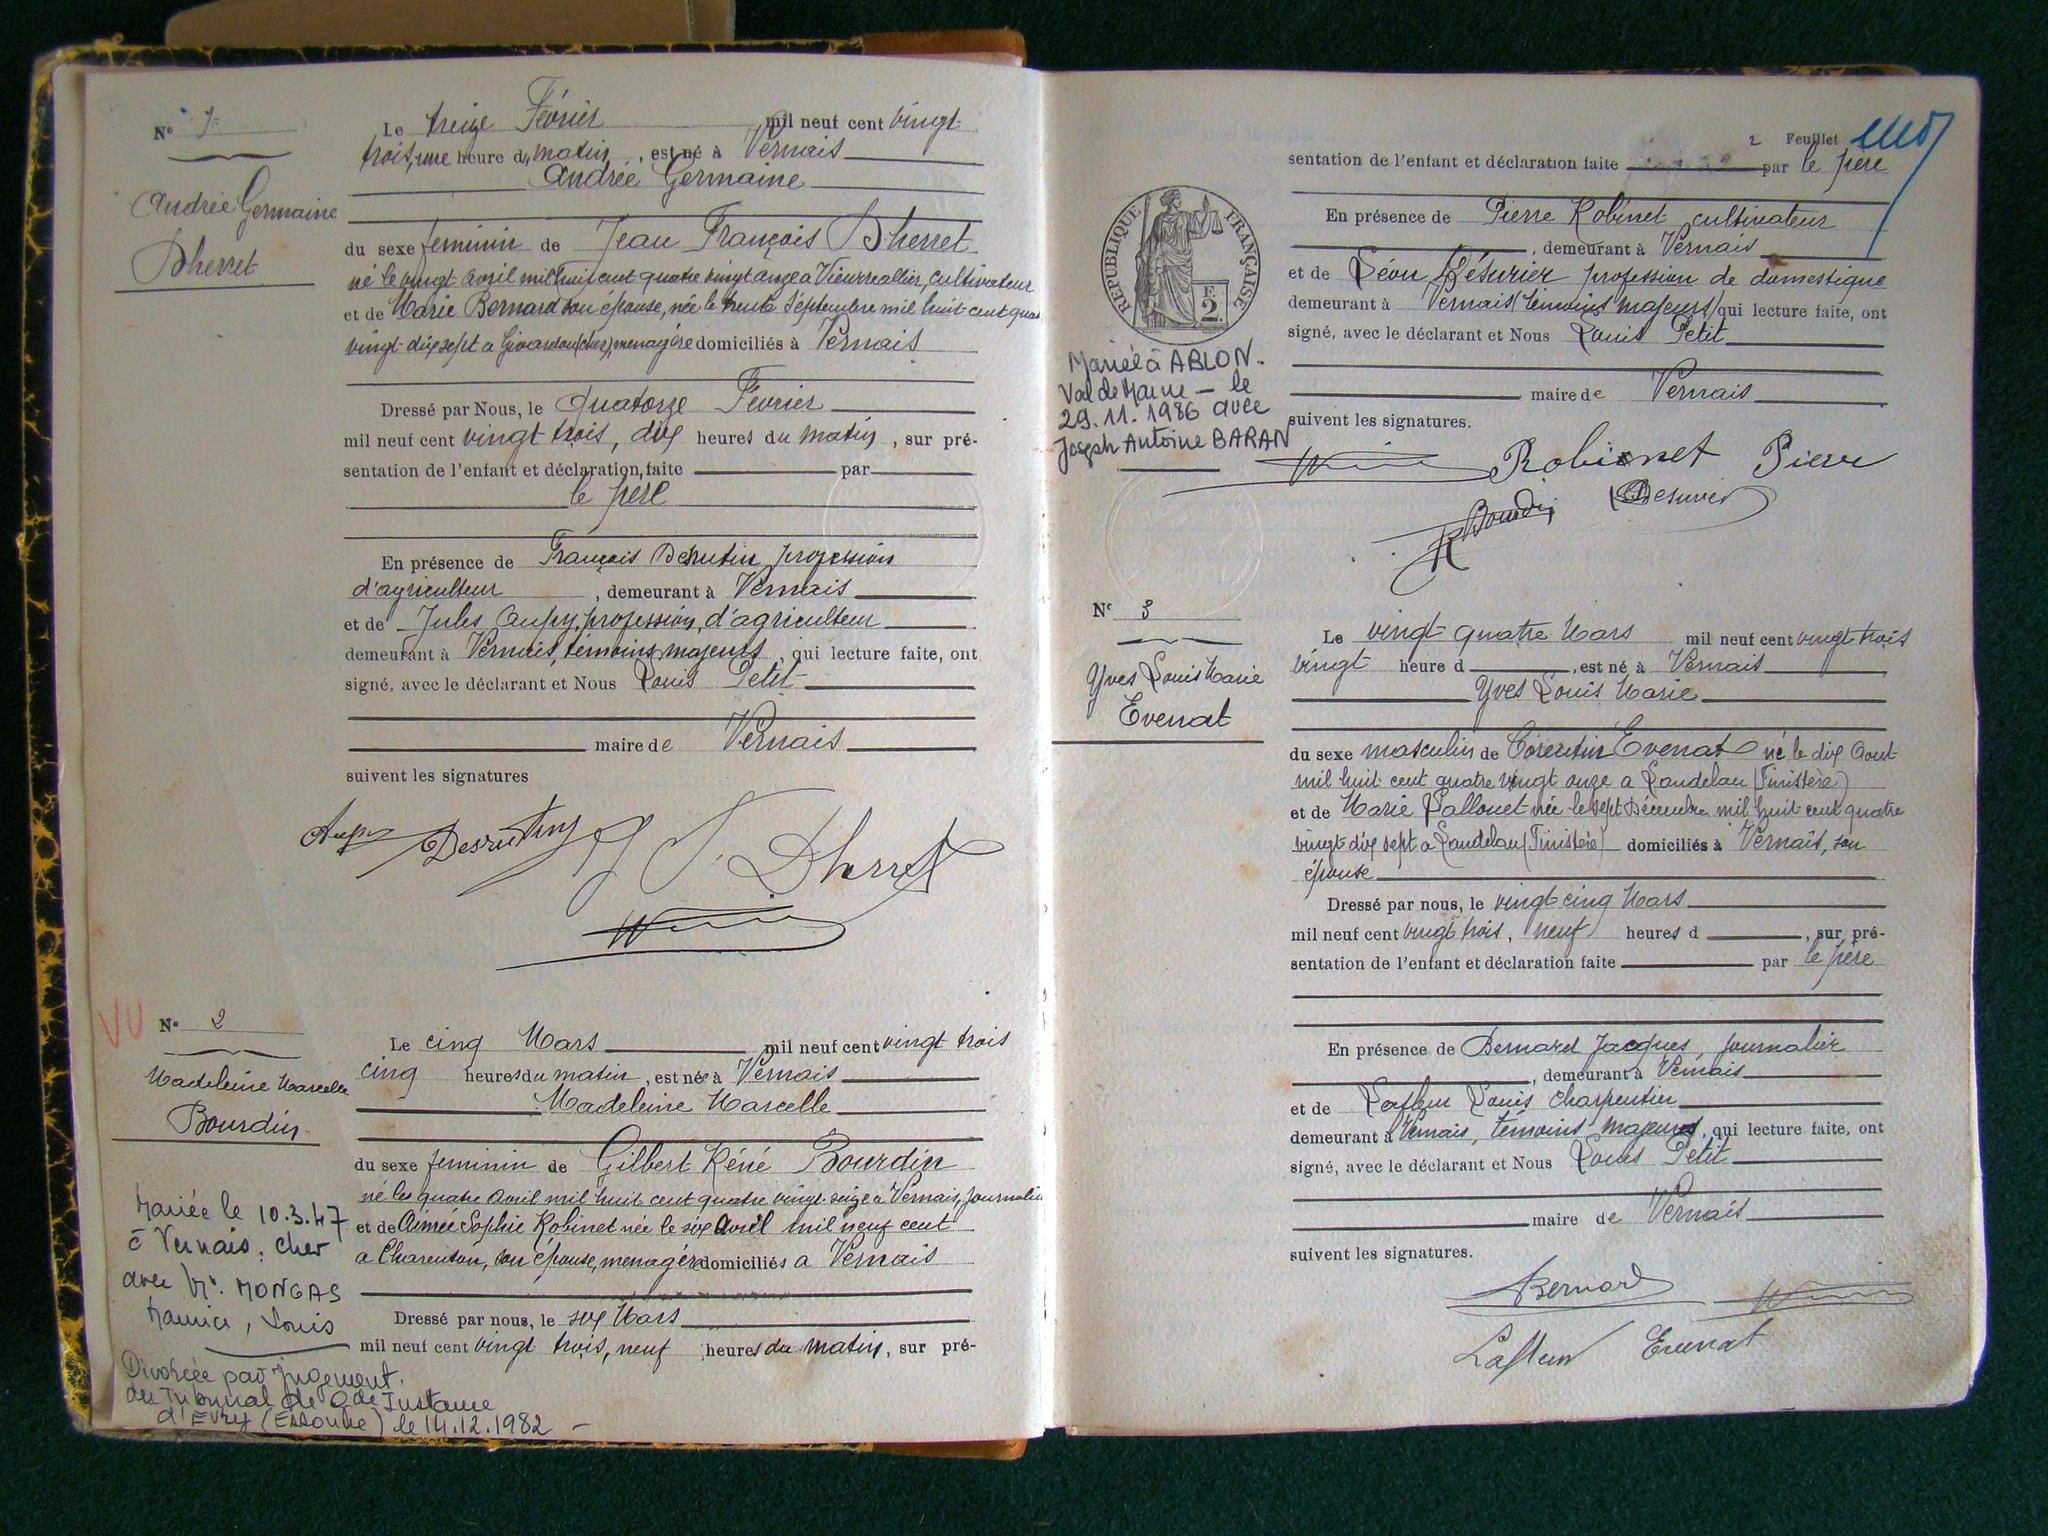 N° 1
Andrée Germaine
Dherret
Le treize Février mil neuf cent vingt
trois, une heure du matin, est né à Vernais
Andrée Germaine
du sexe feminin de Jean François Dherret
né le vingt avril mil huit cent quatre vingt onze à cultivateur
et de Marie Bernard son épouse, née le trente Septembre mil huit cent quatre
vingt-dix sept a Givardon (cher), menagère domiciliés à Vernais
Dressé par Nous, le Quatorze Février
mil neuf cent vingt trois, dix heures du matin, sur pré-
sentation de l'enfant et déclaration faite par
le père
En présence de François Desrutin profession
d'agriculteur, demeurant à Vernais
et de Jules Aupy, profession, d'agriculteur
demeurant à Vernais, témoins majeurs, qui lecture faite, ont
signé, avec le déclarant et Nous Louis Petit
maire de Vernais
suivent les signatures
Aupy Desrutin J Dherret
VU
N° 2
Madeleine Marcelle
Bourdin
Mariée le 10.3.47
à Vernais, cher
avec Mr. MONGAS
Maurice, Louis
Divorcée par jugement
du Tribunal de Gde Instance
d'Evry (Essonne) le 14.12.1982 -
Le cinq Mars mil neuf cent vingt trois
cinq heures du matin, est née à Vernais
Madeleine Marcelle
du sexe feminin de Gilbert Réné Bourdin
né le quatre avril mil huit cent quatre vingt-seize à Vernais, journalier
et de Aimée Sophie Robinet née le six avril mil neuf cent
a Charenton, son épouse, menagère domiciliés a Vernais
Dressé par nous, le six Mars
mil neuf cent vingt trois, neuf heures du matin, sur pré-
2 Feuillet
sentation de l'enfant et déclaration faite par le père
En présence de Pierre Robinet cultivateur
, demeurant à Vernais
et de Léon Désurier profession de domestique
demeurant à Vernais (temoins majeurs) qui lecture faite, ont
signé, avec le déclarant et Nous Louis Petit
maire de Vernais
suivent les signatures.
RÉPUBLIQUE FRANÇAISE
F.
2.
Mariée à ABLON.
Val de Marne - le
29.11.1986 avec
Joseph Antoine BARAN
Robinet Pierre
Bourdin Desurier
N° 3
Yves Louis Marie
Evenat
Le vingt quatre Mars mil neuf cent vingt trois
vingt heure d , est né à Vernais
Yves Louis Marie
du sexe masculin de Corentin Evenat né le dix Aout
mil huit cent quatre vingt onze a Landelau (Finistère)
et de Marie née le sept Décembre mil huit cent quatre
vingt dix sept a Landelau (Finistère) domiciliés à Vernais, son
épouse
Dressé par nous, le vingt cinq Mars
mil neuf cent vingt trois, neuf heures d , sur pré-
sentation de l'enfant et déclaration faite par le père
En présence de Bernard Jacques journalier
, demeurant à Vernais
et de Lafleur Louis charpentier
demeurant à Vernais, témoins majeurs, qui lecture faite, ont
signé, avec le déclarant et Nous Louis Petit
maire de Vernais
suivent les signatures.
Bernard
Lafleur Evenat